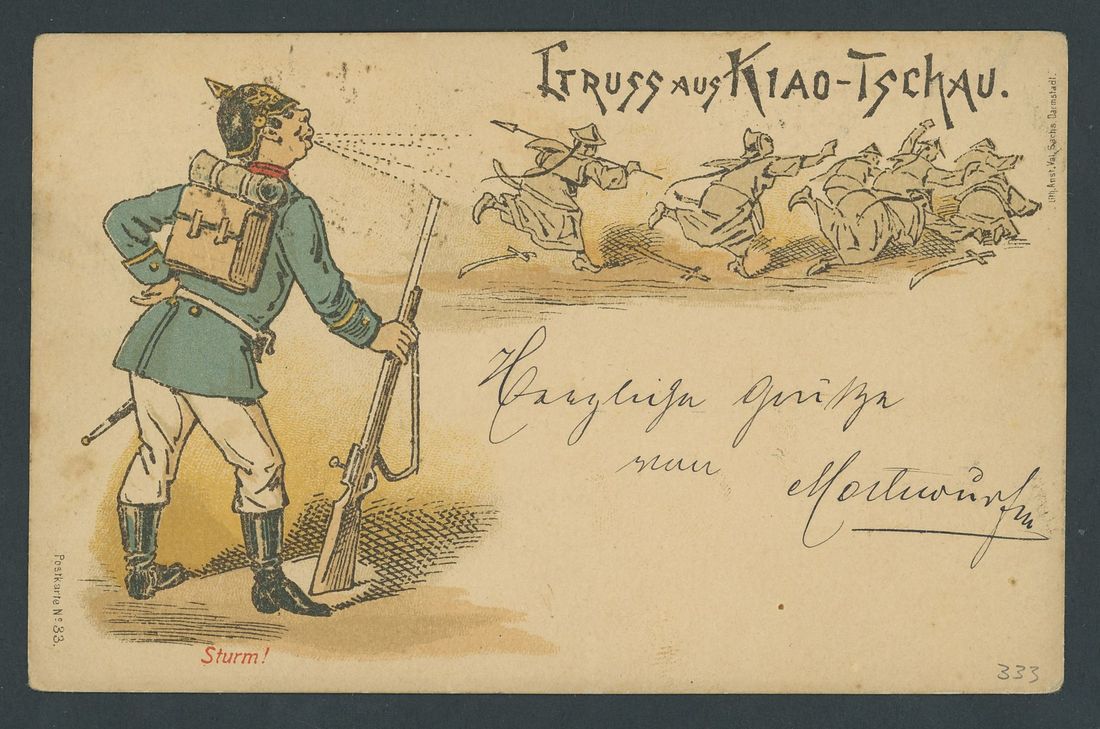 GRUSS AUS KIAO-TSCHAU.
Lith. Anst. Val. Sachs. Darmstadt.
Herzliche Grüße
von
Postkarte No. 33.
Sturm!
333